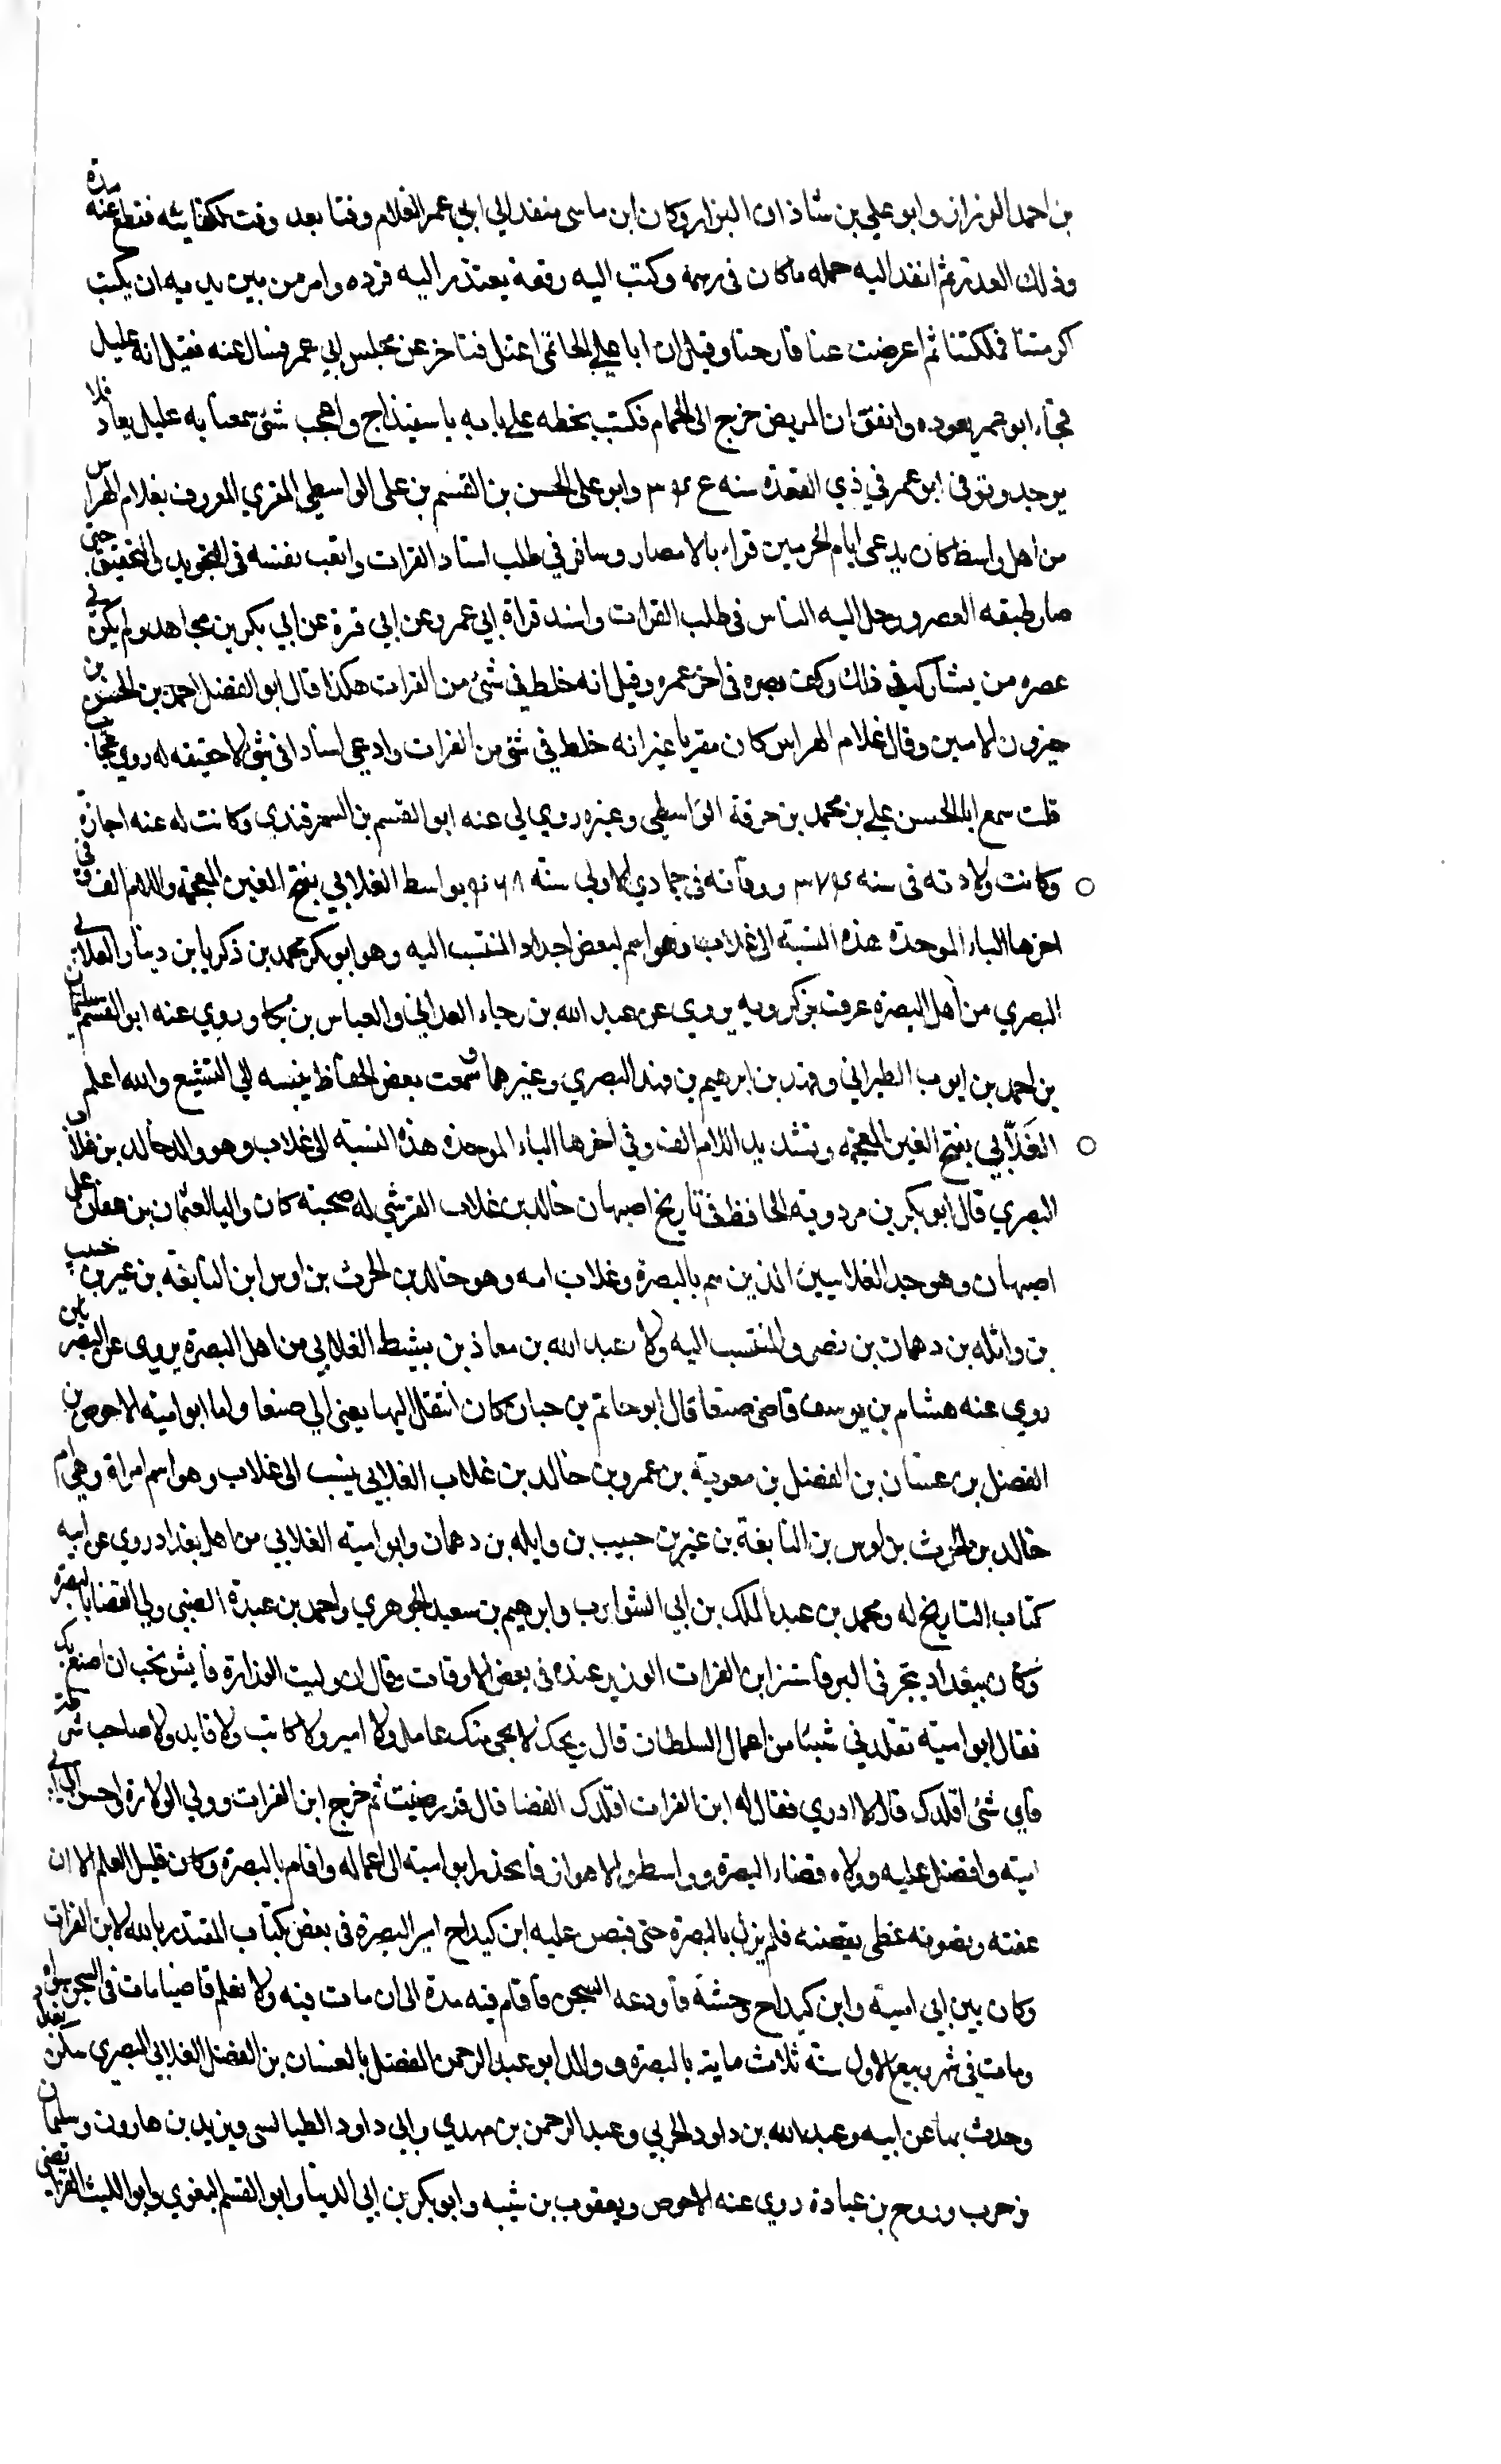 بن احمد الرزاز وابو علي بن شاذان البزاز وكان ابن ماسي منفد الي ابي عمر الغلام وقتا بعد وقت كفايته فقطع عنه مدة
وذلك العذر ثم انفد اليه حمله ماكان في رسمه وكتب اليه رقعة يعتذر اليه فرده وامر من بين يديه ان يكتب
اكرمتنا فملكتنا ثم اعرضت عنا فارحتنا وقيل ان ابا علي الحاتمي اعتل فتاخر عن مجلس ابي عمر فسال عنه فقيل انه عليل
فجاء ابو عمر يعوده واتفق ان المريض خرج الى الحمام فكتب بخطه على بابه باسفيذاج واعجب شئ سمعنا به عليل يعاد فلا
يوجد وتوفي ابو عمر في ذي القعدة سنه وابو على الحسن بن القسم بن على الواسطي المقري المعروف بغلام الهراس
من اهل واسط كان يدعى امام الحرمين قراء بالامصار وسافر في طلب اسناد القرات واتعب نفسه في التجويد والتحقيق حتى
صار طبقه العصر ورحل اليه الناس في طلب القرات واسند قراة ابي عمرو عن ابي قرة عن ابي بكر بن مجاهد ولم يكن في
عصره من يشاركه في ذلك وكف بصره في اخر عمره وقيل انه خلط في شئ من القرات هكذا قال ابو الفضل احمد بن الحسن بن
خيرون الامين وقال غلام الهراس كان مقريا غير انه خلط في شئ من القرات وادعى اسنادا في شئ لا حقيقه له روي عجائب
قلت سمع ابا الحسن علي بن محمد بن خرفة الواسطي وغيره روي لي عنه ابو القسم بن السمرقندي وكانت له عنه اجازة
وكانت ولادته في سنه ٣٧٤ ووفاته في جمادي الاولي سنه ٤٦٨ بواسط الغلابي بفتح الغين المعجمة واللام الف وفي
اخرها الباء الموحدة هذه النسبة الى غلاب وهو اسم لبعض اجداد المنتسب اليه وهو ابو بكر محمد بن زكريا بن دينار الغلابي
البصري من اهل البصره عرف بزكرويه يروي عن عبد الله بن رجاء الغداني والعباس بن بكار وروي عنه ابو القسم سليمان
بن احمد بن ايوب الطبراني وفهد بن ابرهيم بن فهد البصري وغيرهما وسمعت بعض الحفاظ ينسبه الي التشيع والله اعلم
الغَلّابي بفتح الغين المعجمه وتشديد اللام الف وفي اخرها الباء الموحدة هذه النسبة الى غلاب وهو والد خالد بن غلاب
البصري قال ابو بكر بن مردويه الحافظ في تاريخ اصبهان خالد بن غلاب القرشي له صحبته كان واليا لعثمان بن عفان على
اصبهان وهو جد الغلابيين الذين هم بالبصرة وغلاب امه وهو خالد بن الحرث بن اوس ابن النابغه بن عير بن حبيب
بن واثله بن دهمان بن نصر والمنتسب اليه ولا عبد الله بن معاذ بن بشيط الغلابي من اهل البصرة يروي عن البصريين
روي عنه هشام بن يوسف قاضي صنعا قال ابو حاتم بن حبان كان انتقل اليها يعني الي صنعا واما ابو امية الاحوص بن
الفضل بن غسان بن الفضل بن معوية بن عمرو بن خالد بن غلاب الغلابي ينسب الى غلاب وهو اسم امراة وهي ام
خالد بن الحرث بن اوس بن النابغة بن غير بن حبيب بن وايله بن دهمان وابو امية الغلابي من اهل بغداد روي عن ابيه
كتاب التاريخ له ومحمد بن عبد الملك بن ابي الشوارب وابرهيم بن سعيد الجوهري واحمد بن عبدة الضبي ولي القضا بالبصرة
وكان ببغداد يتجر في البز فاستتر ابن الفرات الوزير عنده في بعض الاوقات وقال ان وليت الوزارة فايش تحب ان اصنع بك
فقال ابو امية تقلدني شيئا من اعمال السلطان قال ويحك لا يجي منك عامل ولا امير ولا كاتب ولا قايد ولا صاحب شرطة
فاي شئ اقلدك قال لا ادري فقال له ابن الفرات اقلدك القضا قال قد رضيت ثم خرج ابن الفرات وولي الوزارة واحسن الي ابي
امية وافضل عليه وولاه قضاء البصرة وواسط والاهواز فانحدر ابو امية الى اعماله واقام بالبصرة وكان قليل العلم الا ان
عفته وتصونه غطى بقيصته فلم يزل بالبصرة حتى قبض عليه ابن كيداح امير البصرة في بعض كتاب المقتدر بالله لابن الفرات
وكان بين ابي امية وابن كيداح وحشة فاودعه السجن فاقام فيه مدة الى ان مات فيه ولا نعلم قاضيا مات في السجن سواه
ومات في شهر ربيع الاول سنة ثلاث ماية بالبصره ووالد ابو عبد الرحمن الفضل بالغسان بن الفضل الغلابي البصري سكن بغداد
وحدث بها عن ابيه وعبد الله بن داود الحربي وعبد الرحمن بن مهدي وابي داود الطيالسي ويزيد بن هارون وسليمان
بن حرب وروح بن عبادة روي عنه الاحوص ويعقوب بن شيبه وابو بكر بن ابي الدنيا وابو القسم البغوي وابو الليث الفرايضي